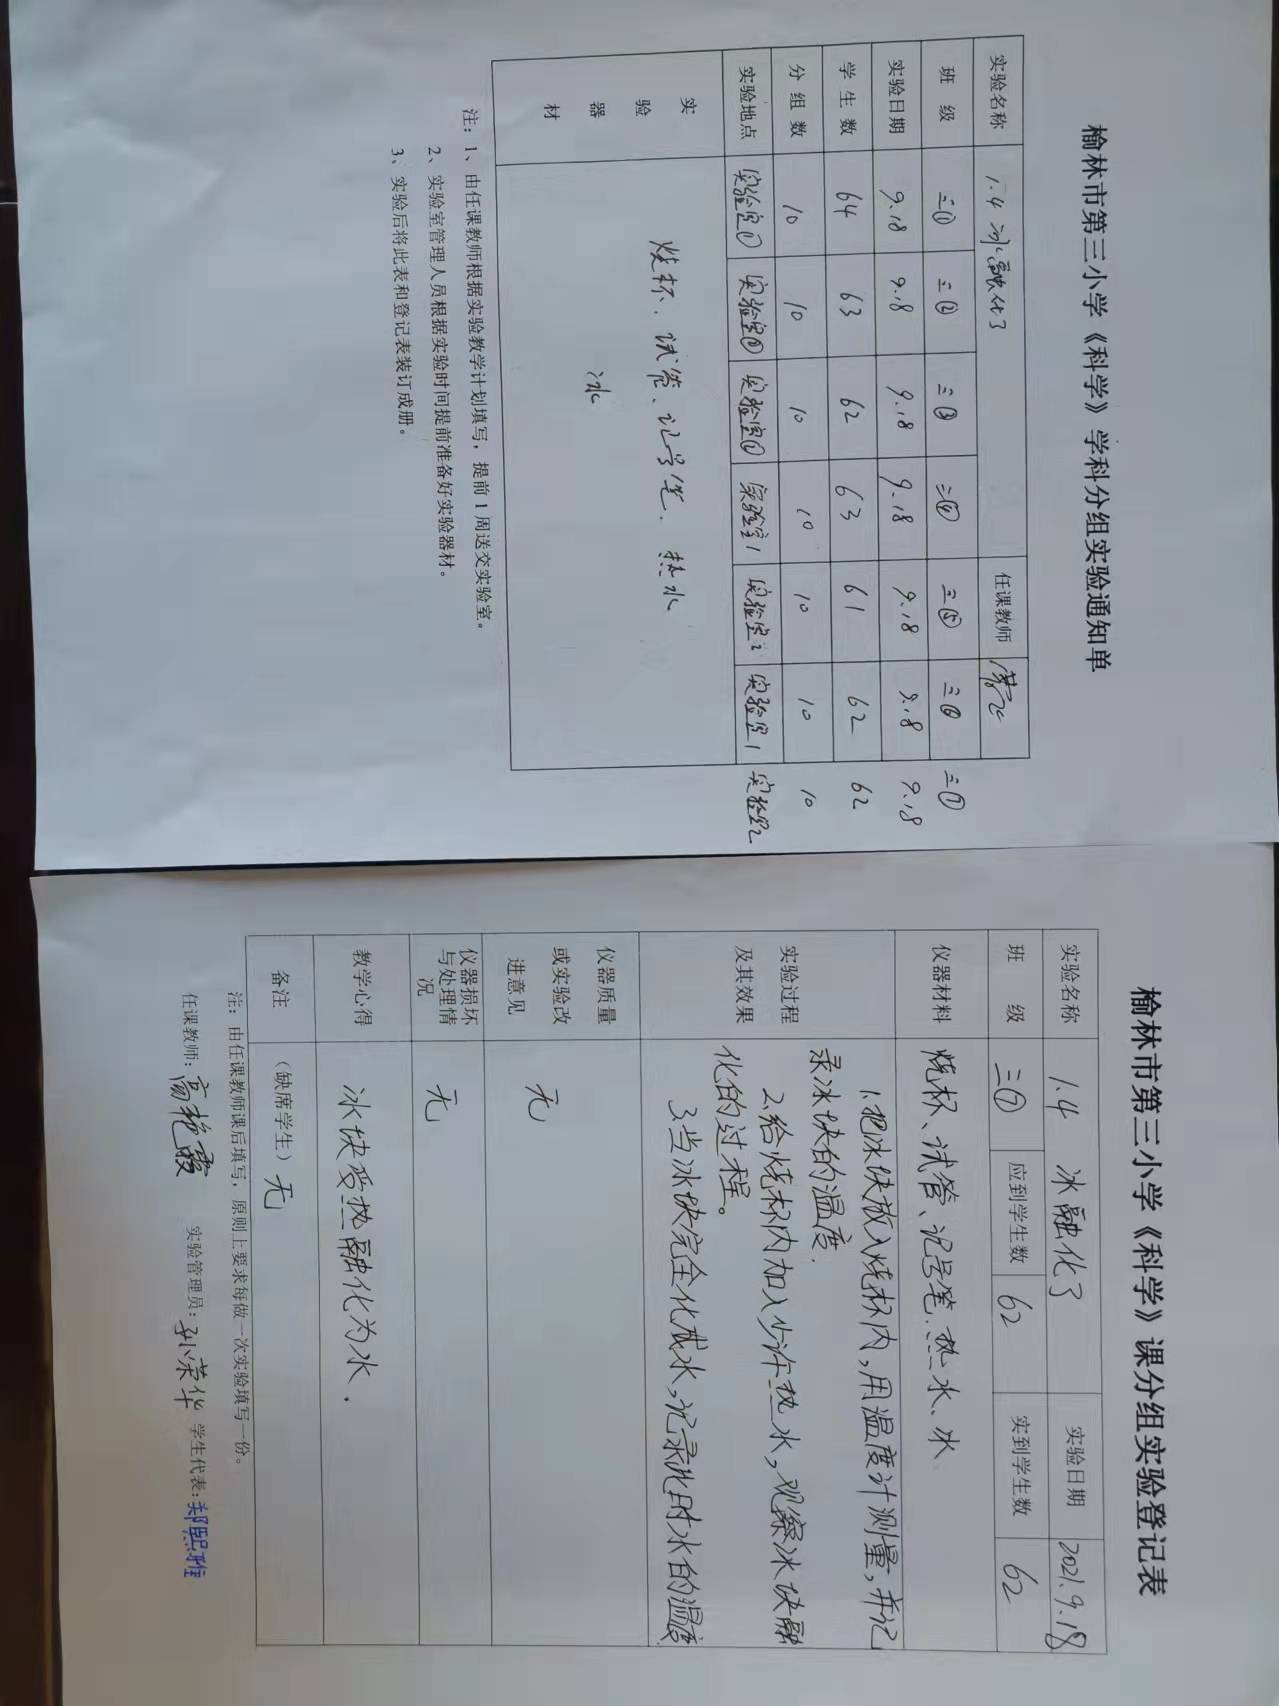 榆林市第三小学《科学》学科分组实验通知单
实验名称 1.4 冰融化了 任课教师
班 级 三① 三② 三③ 三④ 三⑤ 三⑥ 三⑦
实验日期 9.18 9.18 9.18 9.18 9.18 9.18 9.18
学生数 64 63 62 63 61 62 62
分组数 10 10 10 10 10 10 10
实验地点 实验室① 实验室② 实验室① 实验室1 实验室2 实验室1 实验室2
实验器材 烧杯、试管、记号笔、热水
冰
注：1、由任课教师根据实验教学计划填写，提前1周送交实验室。
2、实验室管理人员根据实验时间提前准备好实验器材。
3、实验后将此表和登记表装订成册。
榆林市第三小学《科学》课分组实验登记表
实验名称 1.4 冰融化了 实验日期 2021.9.18
班 级 三⑦ 应到学生数 62 实到学生数 62
仪器材料 烧杯、试管、记号笔、热水、冰
实验过程及其效果 1.把冰块放入烧杯内,用温度计测量,并记
录冰块的温度.
2.给烧杯内加入少许热水,观察冰块融
化的过程。
3.当冰块完全化成水,记录此时水的温度
仪器质量或实验改进意见 无
仪器损坏与处理情况 无
教学心得 冰块受热融化为水.
备注 （缺席学生）无
注：由任课教师课后填写，原则上要求每做一次实验填写一份。
任课教师：高艳霞 实验管理员：孙荣华 学生代表：郑熙雅